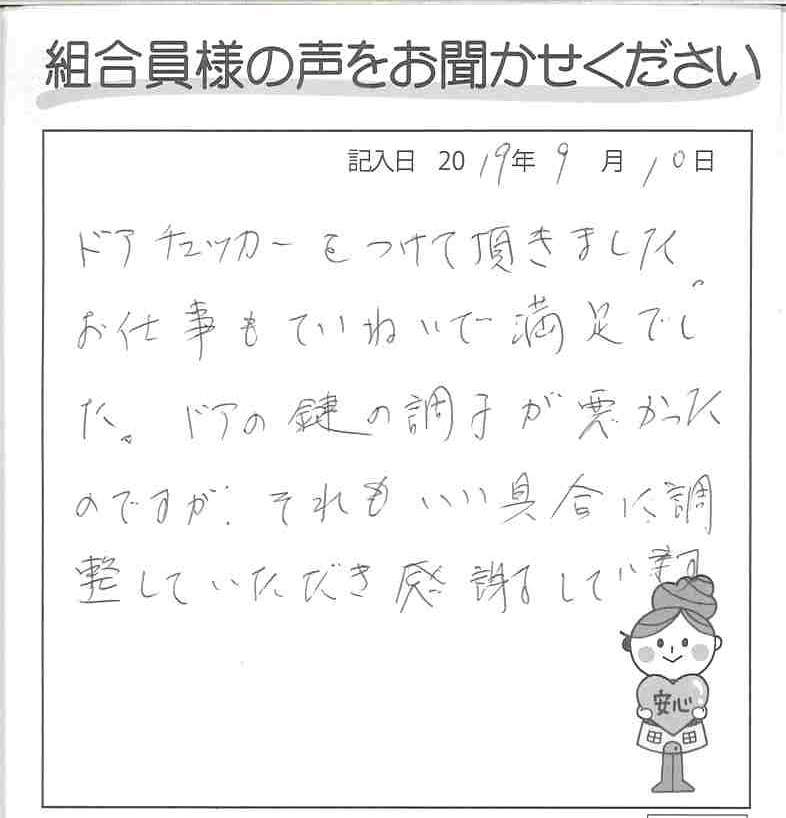 組合員様の声をお聞かせください
記入日 2019年9月10日
ドアチェッカーをつけて頂きました。
お仕事もていねいで満足でし
た。ドアの鍵の調子が悪かった
のですが、それもいい具合に調
整していただき感謝して
安心